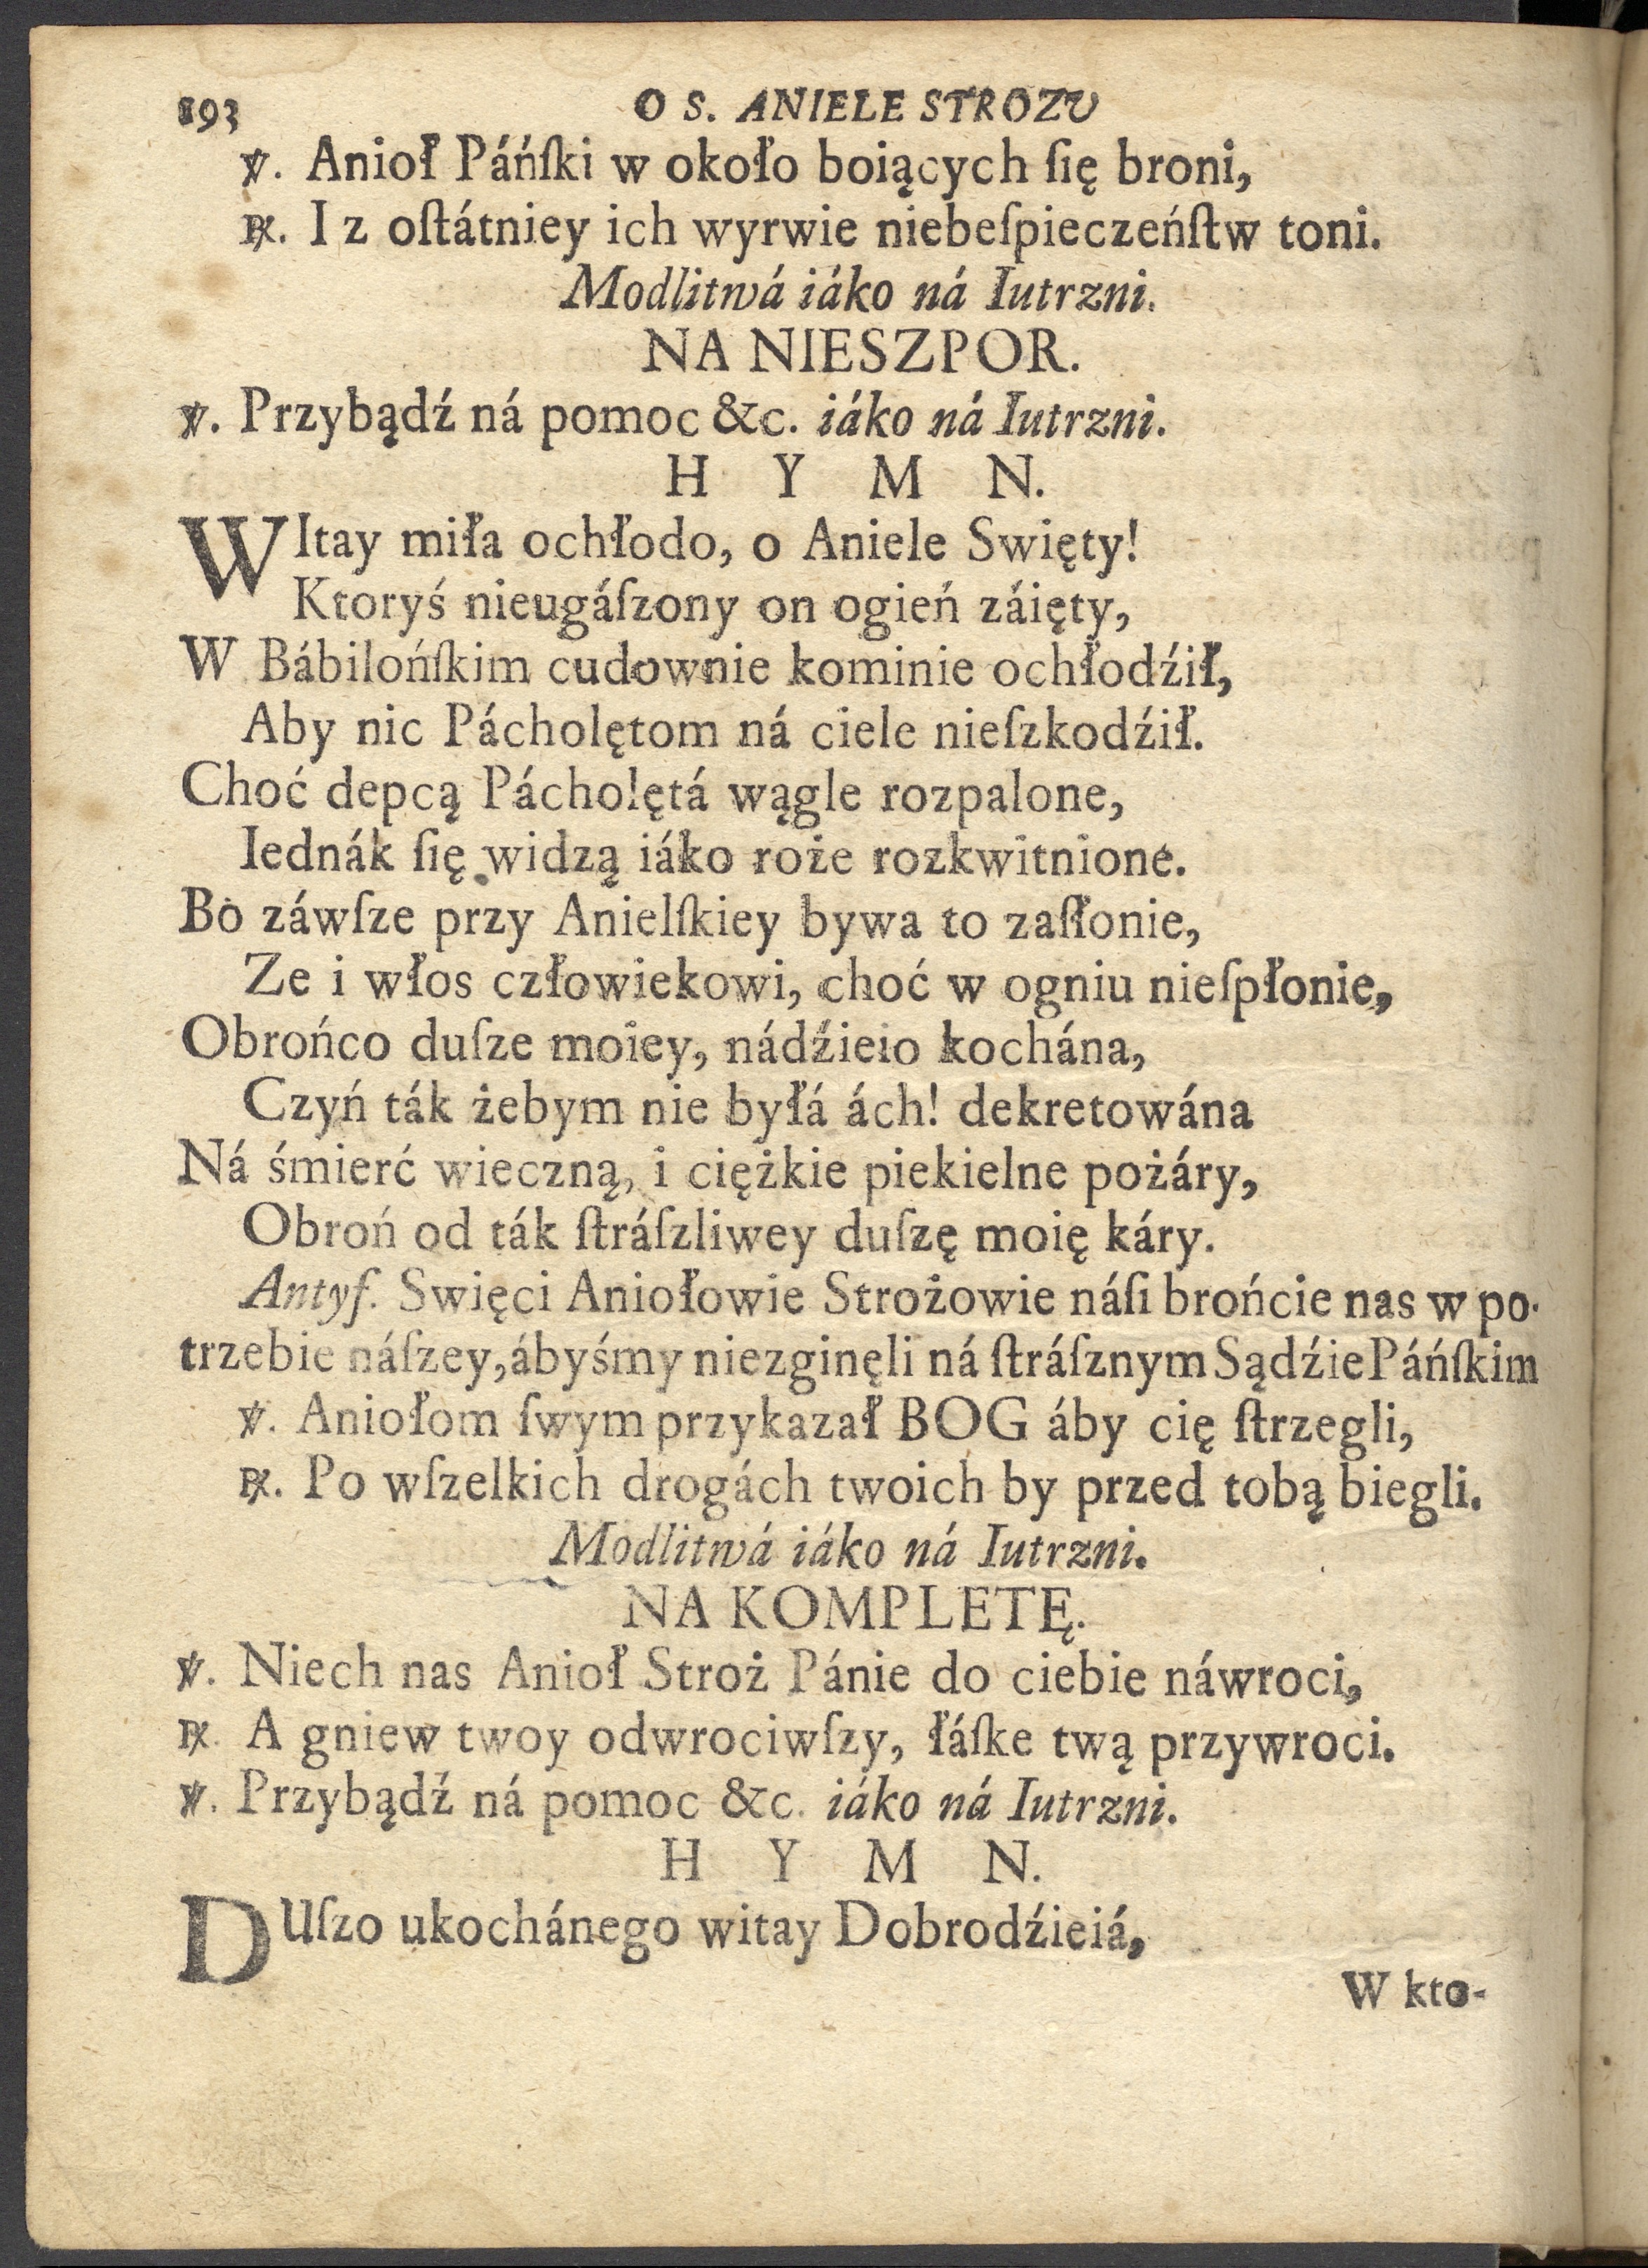 893 O S. ANIELE STROZU
℣. Anioł Páńſki w około boiących ſię broni,
℟. I z oſtátniey ich wyrwie niebeſpieczeńſtw toni.
Modlitwá iáko ná Iutrzni.
NA NIESZPOR.
℣. Przybądź ná pomoc &c. iáko ná Iutrzni.
H Y M N.
WItay miła ochłodo, o Aniele Swięty!
Ktoryś nieugáſzony on ogień záięty,
W Bábilońſkim cudownie kominie ochłodźił,
Aby nic Pácholętom ná ciele nieſzkodźił.
Choć depcą Pácholętá wągle rozpalone,
Iednák ſię widzą iáko roże rozkwitnione.
Bo záwſze przy Anielſkiey bywa to zaſłonie,
Ze i włos człowiekowi, choć w ogniu nieſpłonie,
Obrońco duſze moiey, nádźieio kochána,
Czyń ták żebym nie byłá ách! dekretowána
Ná śmierć wieczną, i ciężkie piekielne pożáry,
Obroń od ták ſtráſzliwey duſzę moię káry.
Antyf. Swięci Aniołowie Strożowie náſi brońcie nas w po-
trzebie náſzey, ábyśmy niezginęli ná ſtráſznym Sądźie Páńſkim
℣. Aniołom ſwym przykazał BOG áby cię ſtrzegli,
℟. Po wſzelkich drogách twoich by przed tobą biegli.
Modlitwá iáko ná Iutrzni.
NA KOMPLETĘ.
℣. Niech nas Anioł Stroż Pánie do ciebie náwroci,
℟. A gniew twoy odwrociwſzy, łáſke twą przywroci.
℣. Przybądź ná pomoc &c. iáko ná Iutrzni.
H Y M N.
DUſzo ukochánego witay Dobrodźieiá,
W kto-